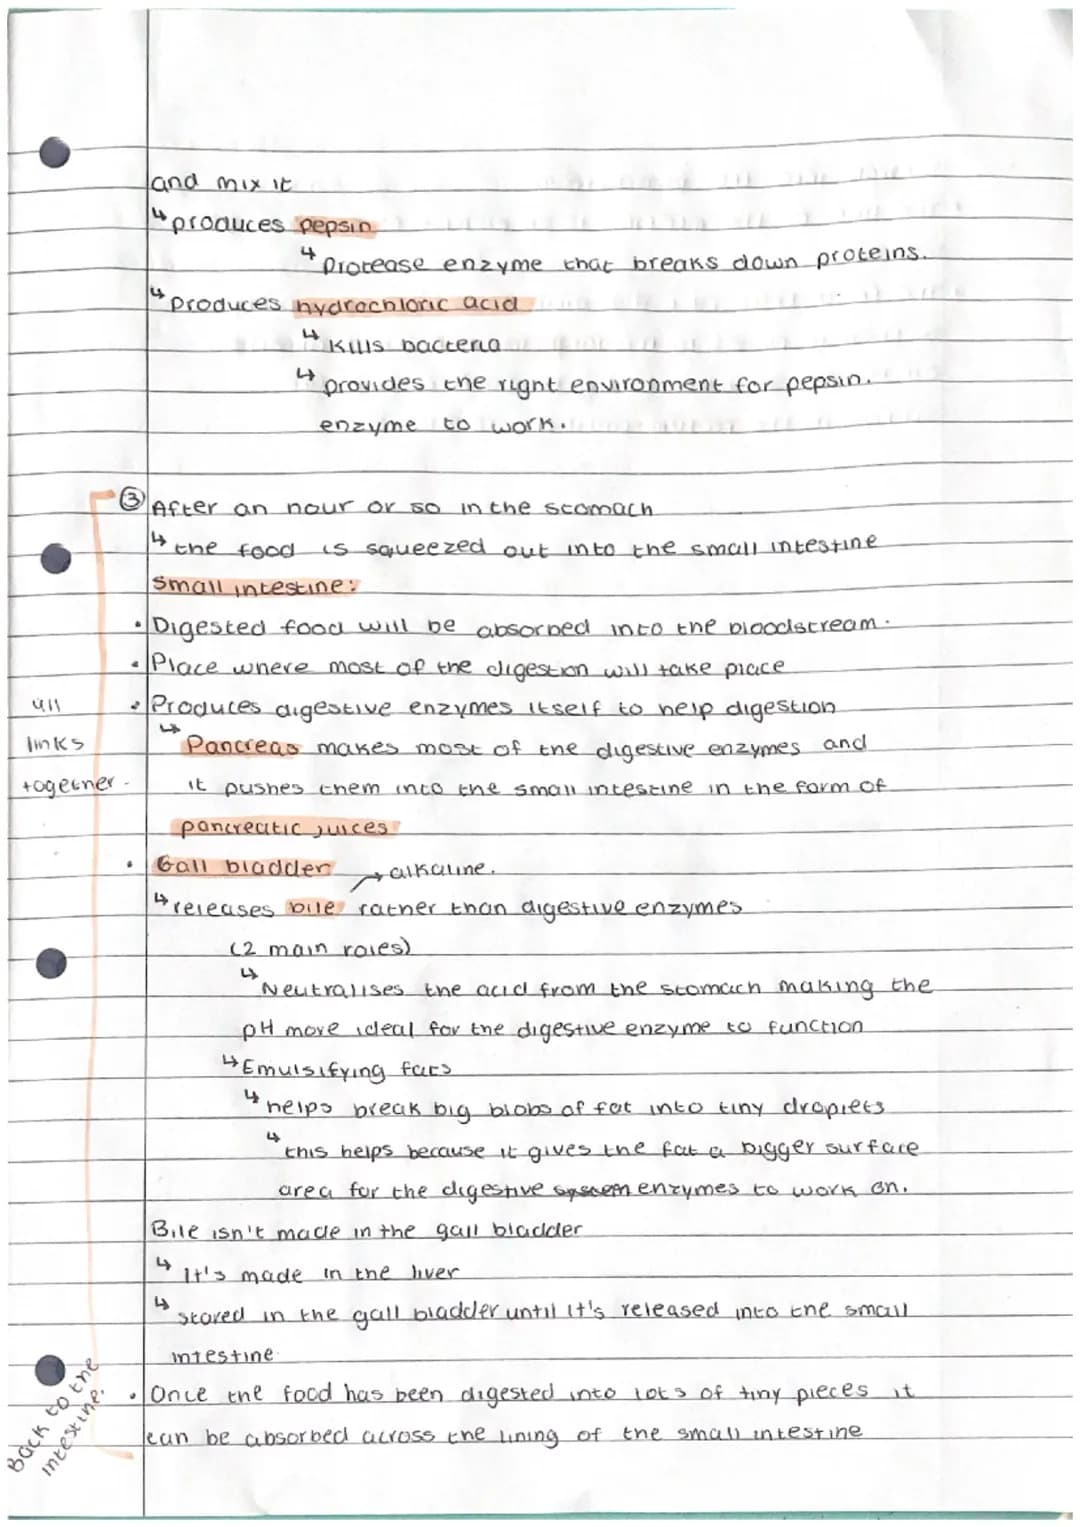 and mix it
↳ produces pepsin
↳ Protease enzyme that breaks down proteins.
↳ produces hydrochloric acid
↳ Kills bacteria
↳ provides the right environment for pepsin.
enzyme to work.
③ After an hour or so in the stomach
↳ the food is squeezed out into the small intestine
Small intestine:
• Digested food will be absorbed into the bloodstream.
• Place where most of the digestion will take place
• Produces digestive enzymes itself to help digestion
↳ Pancreas makes most of the digestive enzymes and
it pushes them into the small intestine in the form of
pancreatic juices
all
links
together.
• Gall bladder → alkaline.
↳ releases bile rather than digestive enzymes
(2 main roles)
↳ Neutralises the acid from the stomach making the
pH more ideal for the digestive enzyme to function
↳ Emulsifying fats
↳ helps break big blobs of fat into tiny droplets
↳ this helps because it gives the fat a bigger surface
area for the digestive system enzymes to work on.
Bile isn't made in the gall bladder
↳ It's made in the liver
↳ stored in the gall bladder until it's released into the small
intestine
Back to the
intestine.
• Once the food has been digested into lots of tiny pieces it
can be absorbed across the lining of the small intestine